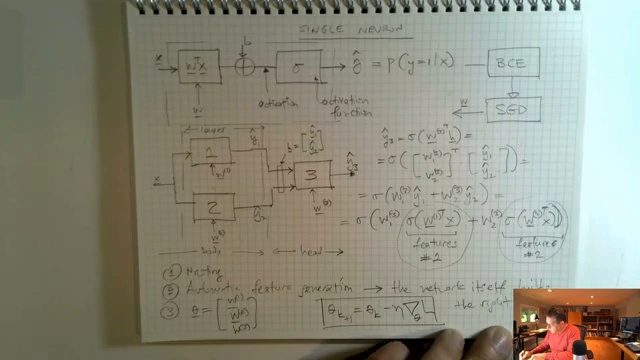 SINGLE NEURON
x → wᵀx → + → σ → ŷ = p(y=1|x) — BCE
w
activation
activation function
w
SGD
layer
ŷ₁
h = [ŷ₁ ŷ₂]
ŷ₃
x
1
w⁽¹⁾
2
w⁽²⁾
ŷ₂
3
w⁽³⁾
body
head
ŷ₃ = σ(w⁽³⁾ᵀ h) =
= σ([w₁⁽³⁾ w₂⁽³⁾]ᵀ [ŷ₁ ŷ₂]) =
= σ(w₁⁽³⁾ ŷ₁ + w₂⁽³⁾ ŷ₂) =
= σ(w₁⁽³⁾ σ(w⁽¹⁾ᵀ x) + w₂⁽³⁾ σ(w⁽²⁾ᵀ x))
features #2
features #2
① Nesting
② Automatic feature generation → the network itself builds
the right
③ θ = [w⁽¹⁾ w⁽²⁾ w⁽³⁾]
θₖ₊₁ = θₖ − η ∇_θ L